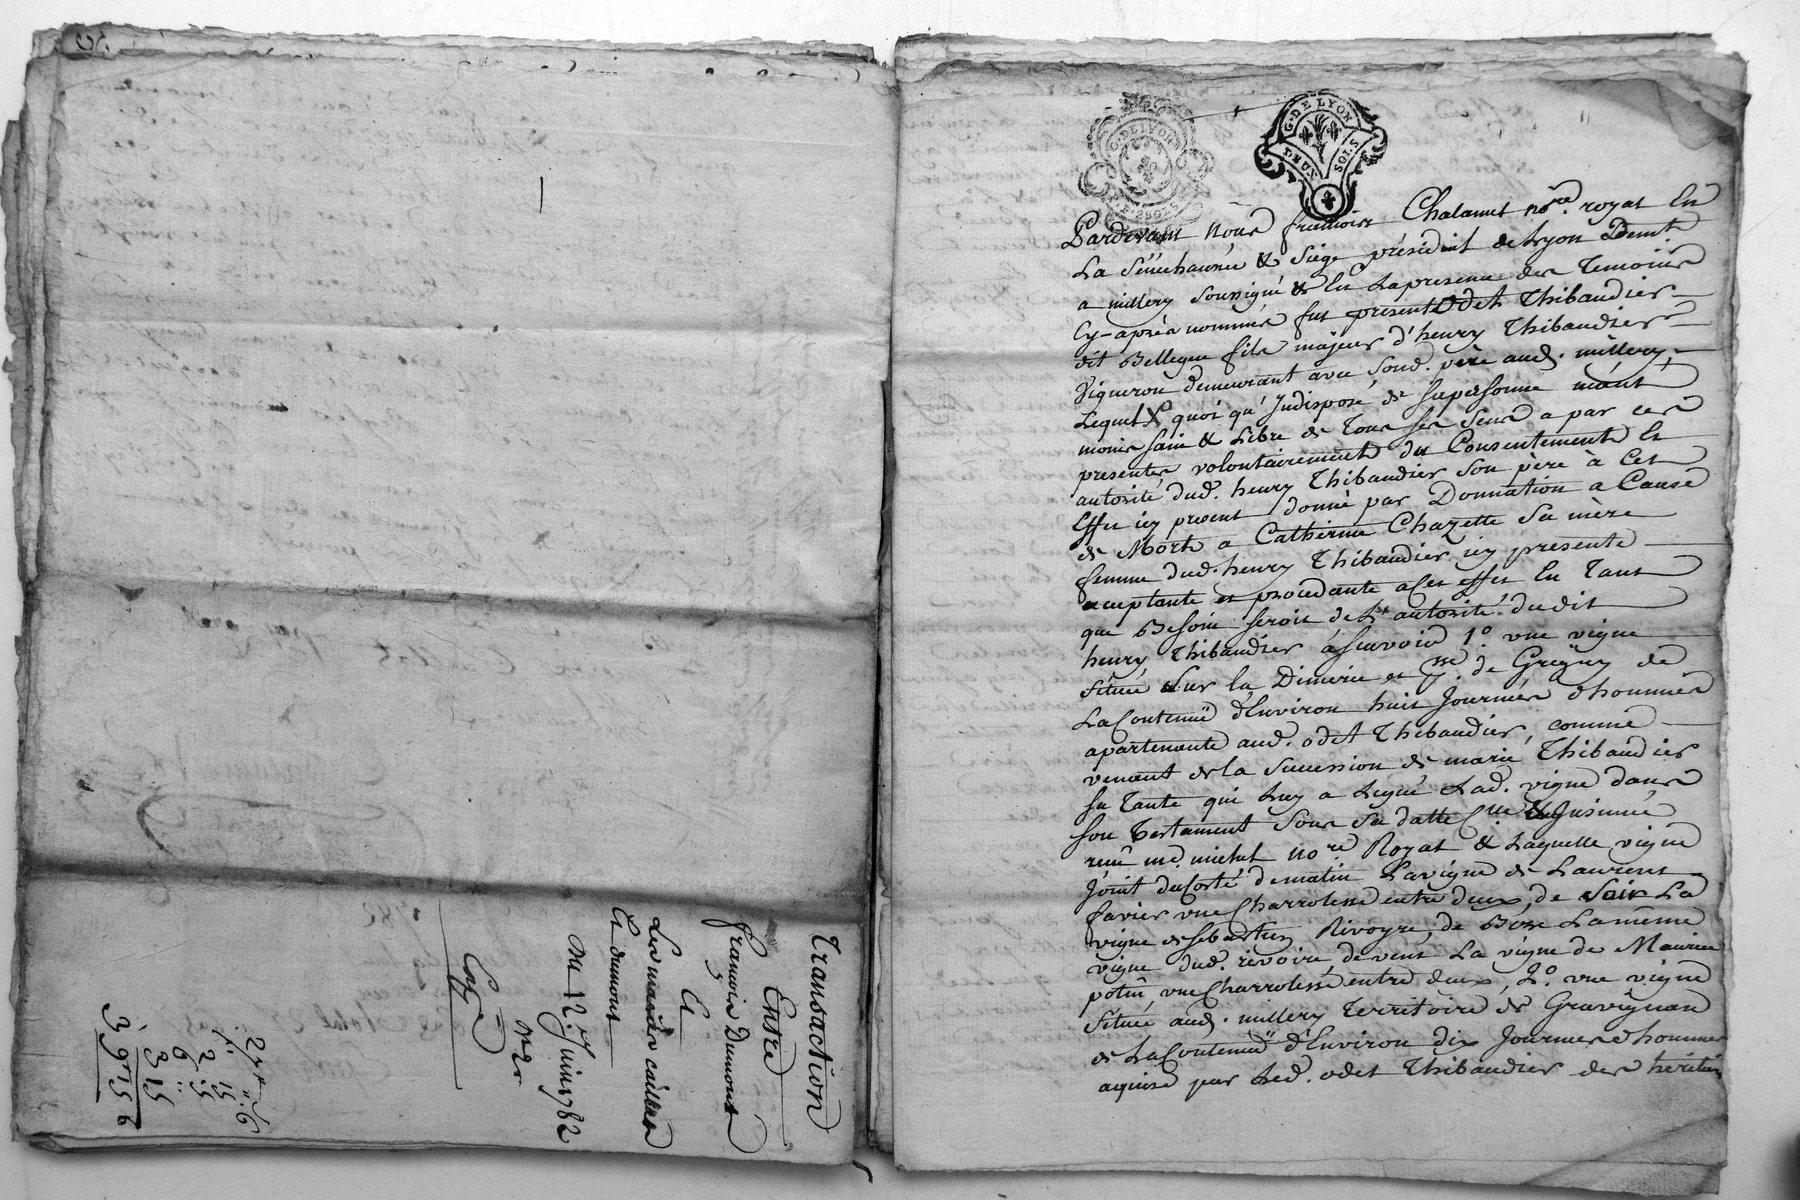 Transaction
Entre
françois Dumont
Et
Les mariés caillat
Et dumont
Du 12.e Juin 1782
Exp.
3 15
G. DE LYON
DEUX SOLS
G. DE LYON
Pardevant Nous françois Chalamel no.re royal En
La Sénéchaussée & Siège présidial de Lyon Demt
a millery soussigné & En La presence des Temoins
Cy-après nommés fut présent Odet Thibaudier
dit Bellegue fils majeur d'henry Thibaudier
Vigneron demeurant avec sond. père aud. millery,
Lequel quoi qu'Indisposé de sa personne néant
moins sain & Libre de Tous ses sens a par ces
presentes volontairement du Consentement Et
autorité dud. henry Thibaudier son père à Cet
Effet icy present donné par Donnation a Cause
de Mort a Catherine Chazette Sa mère
femme dud. henry Thibaudier icy presente
acceptante et procedante a Cet effet En Tant
que Besoin seroit de L'autorité dudit
henry Thibaudier ásçavoir 1.o vne vigne
située sur la Dimerie et de Grigny de
La Contenüe d'Environ huit Journées d'hommes
apartenante aud. odet Thibaudier, comme
venant de la Succession de marie Thibaudier
sa Tante qui Luy a Legué Lad. vigne dans
son Testament Sous Sa datte & Insinué
reçu me. michel no.re Royal & Laquelle vigne
Joint du Costé de matin La vigne de Laurent
favier vne Charrolesse entre deux, de Soir La
vigne de Sebastien Rivoyre, de Bize La même
vigne dud. rivoire, de vent La vigne de Maurice
potin, vne Charrolesse entre deux, 2.o vne vigne
Située aud. millery Territoire de Gravignan
de La Contenüe d'Environ dix Journées d'hommes
aquise par Led. odet Thibaudier des héritiers